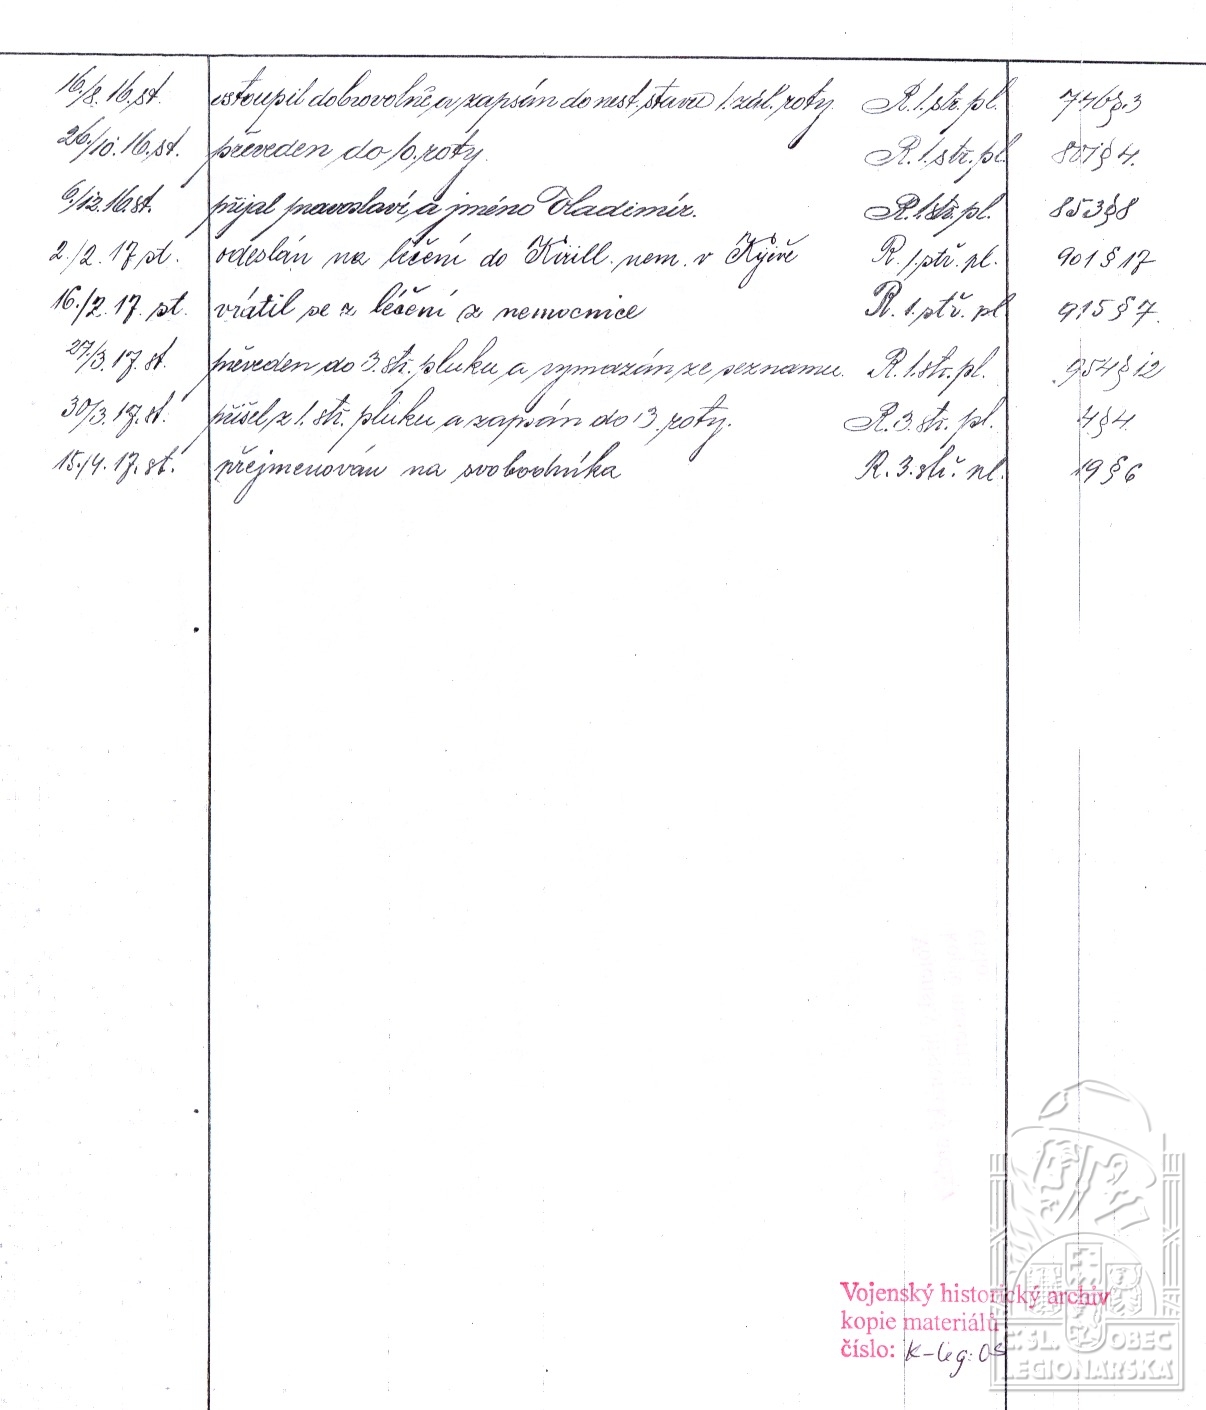 16/8. 16. st. vstoupil dobrovolně, a zapsán do nest. stavu 1. zál. roty R. 1. stř. pl. 746 § 3
26/10. 16. st. převeden do 10. roty. R. 1. stř. pl. 807 § 4.
6/12. 16. st. přijal pravoslaví, a jméno Vladimír. R. 1. stř. pl. 853 § 8
2./2. 17 st. odeslán na léčení do Kirill. nem. v Kyjevě R. 1. stř. pl. 901 § 17
16./2. 17. st. vrátil se z léčení z nemocnice R. 1. stř. pl. 915 § 7.
27./3. 17. st. převeden do 3. stř. pluku a vymazán ze seznamu. R. 1. stř. pl. 954 § 12
30/3. 17. st. přišel z 1. stř. pluku a zapsán do 13. roty. R. 3. stř. pl. 4 § 4.
15./4. 17. st. přejmenován na svobodníka R. 3. stř. pl. 19 § 6
Vojenský historický archiv
kopie materiálů
číslo: K-leg: OS
Č. SL. OBEC
LEGIONÁŘSKÁ